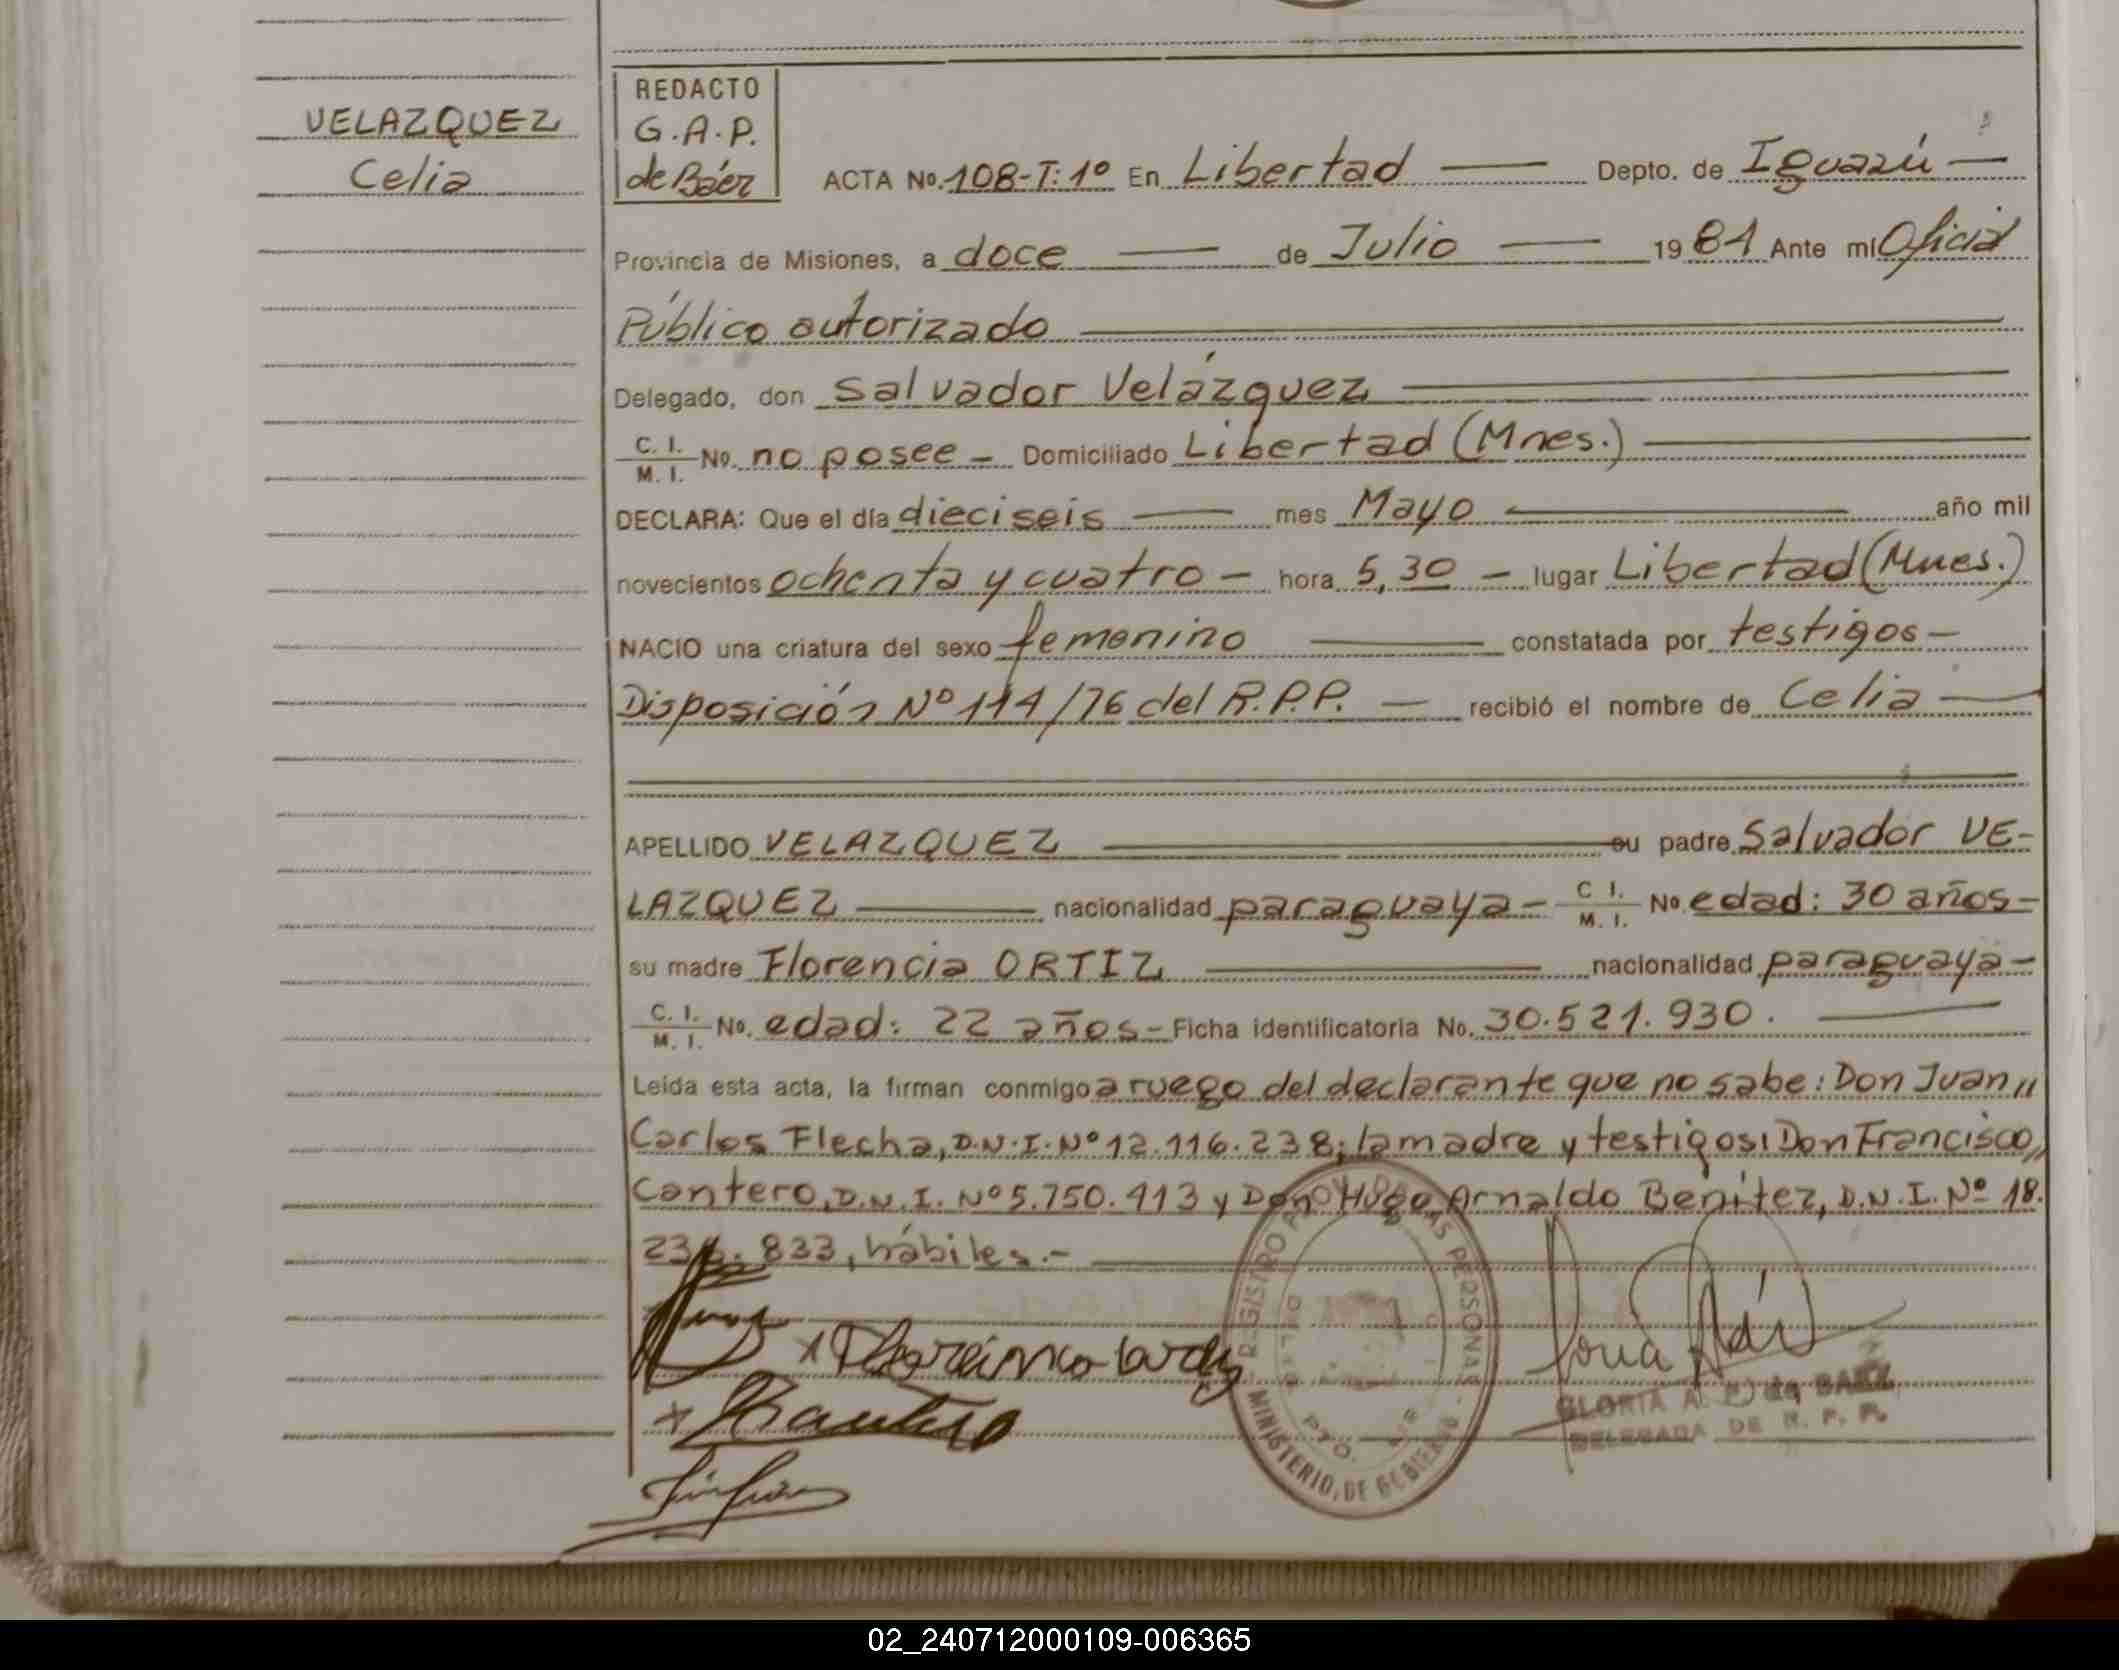 VELAZQUEZ
Celia
REDACTO
G.A.P.
de Báez
ACTA No. 108-T:1º En Libertad Depto. de Iguazú
Provincia de Misiones, a doce de Julio 1984 Ante mi Oficial
Público autorizado
Delegado, don Salvador Velázquez
C. I. M. I. No. no posee - Domiciliado Libertad (Mnes.)
DECLARA: Que el día dieciseis mes Mayo año mil
novecientos ochenta y cuatro - hora 5,30 - lugar Libertad (Mnes.)
NACIO una criatura del sexo femenino constatada por testigos -
Disposición Nº 114/76 del R.P.P. - recibió el nombre de Celia
APELLIDO VELAZQUEZ su padre Salvador VE-
LAZQUEZ nacionalidad paraguaya - C I. M. I. No. edad: 30 años -
su madre Florencia ORTIZ nacionalidad paraguaya -
C. I. M. I. No. edad: 22 años - Ficha identificatoria No. 30.521.930.
Leída esta acta, la firman conmigo a ruego del declarante que no sabe: Don Juan,,
Carlos Flecha, D.N.I. Nº 12.116.238; la madre y testigos: Don Francisco,,
Cantero, D.N.I. Nº 5.750.413 y Don Hugo Arnaldo Benítez, D.N.I. Nº 18.
833, hábiles.-
REGISTRO PERSONAS
MINISTERIO DE GOBIERNO
PTO.
GLORIA A. de BAEZ
DELEGADA DE R. P. P.
02_240712000109-006365